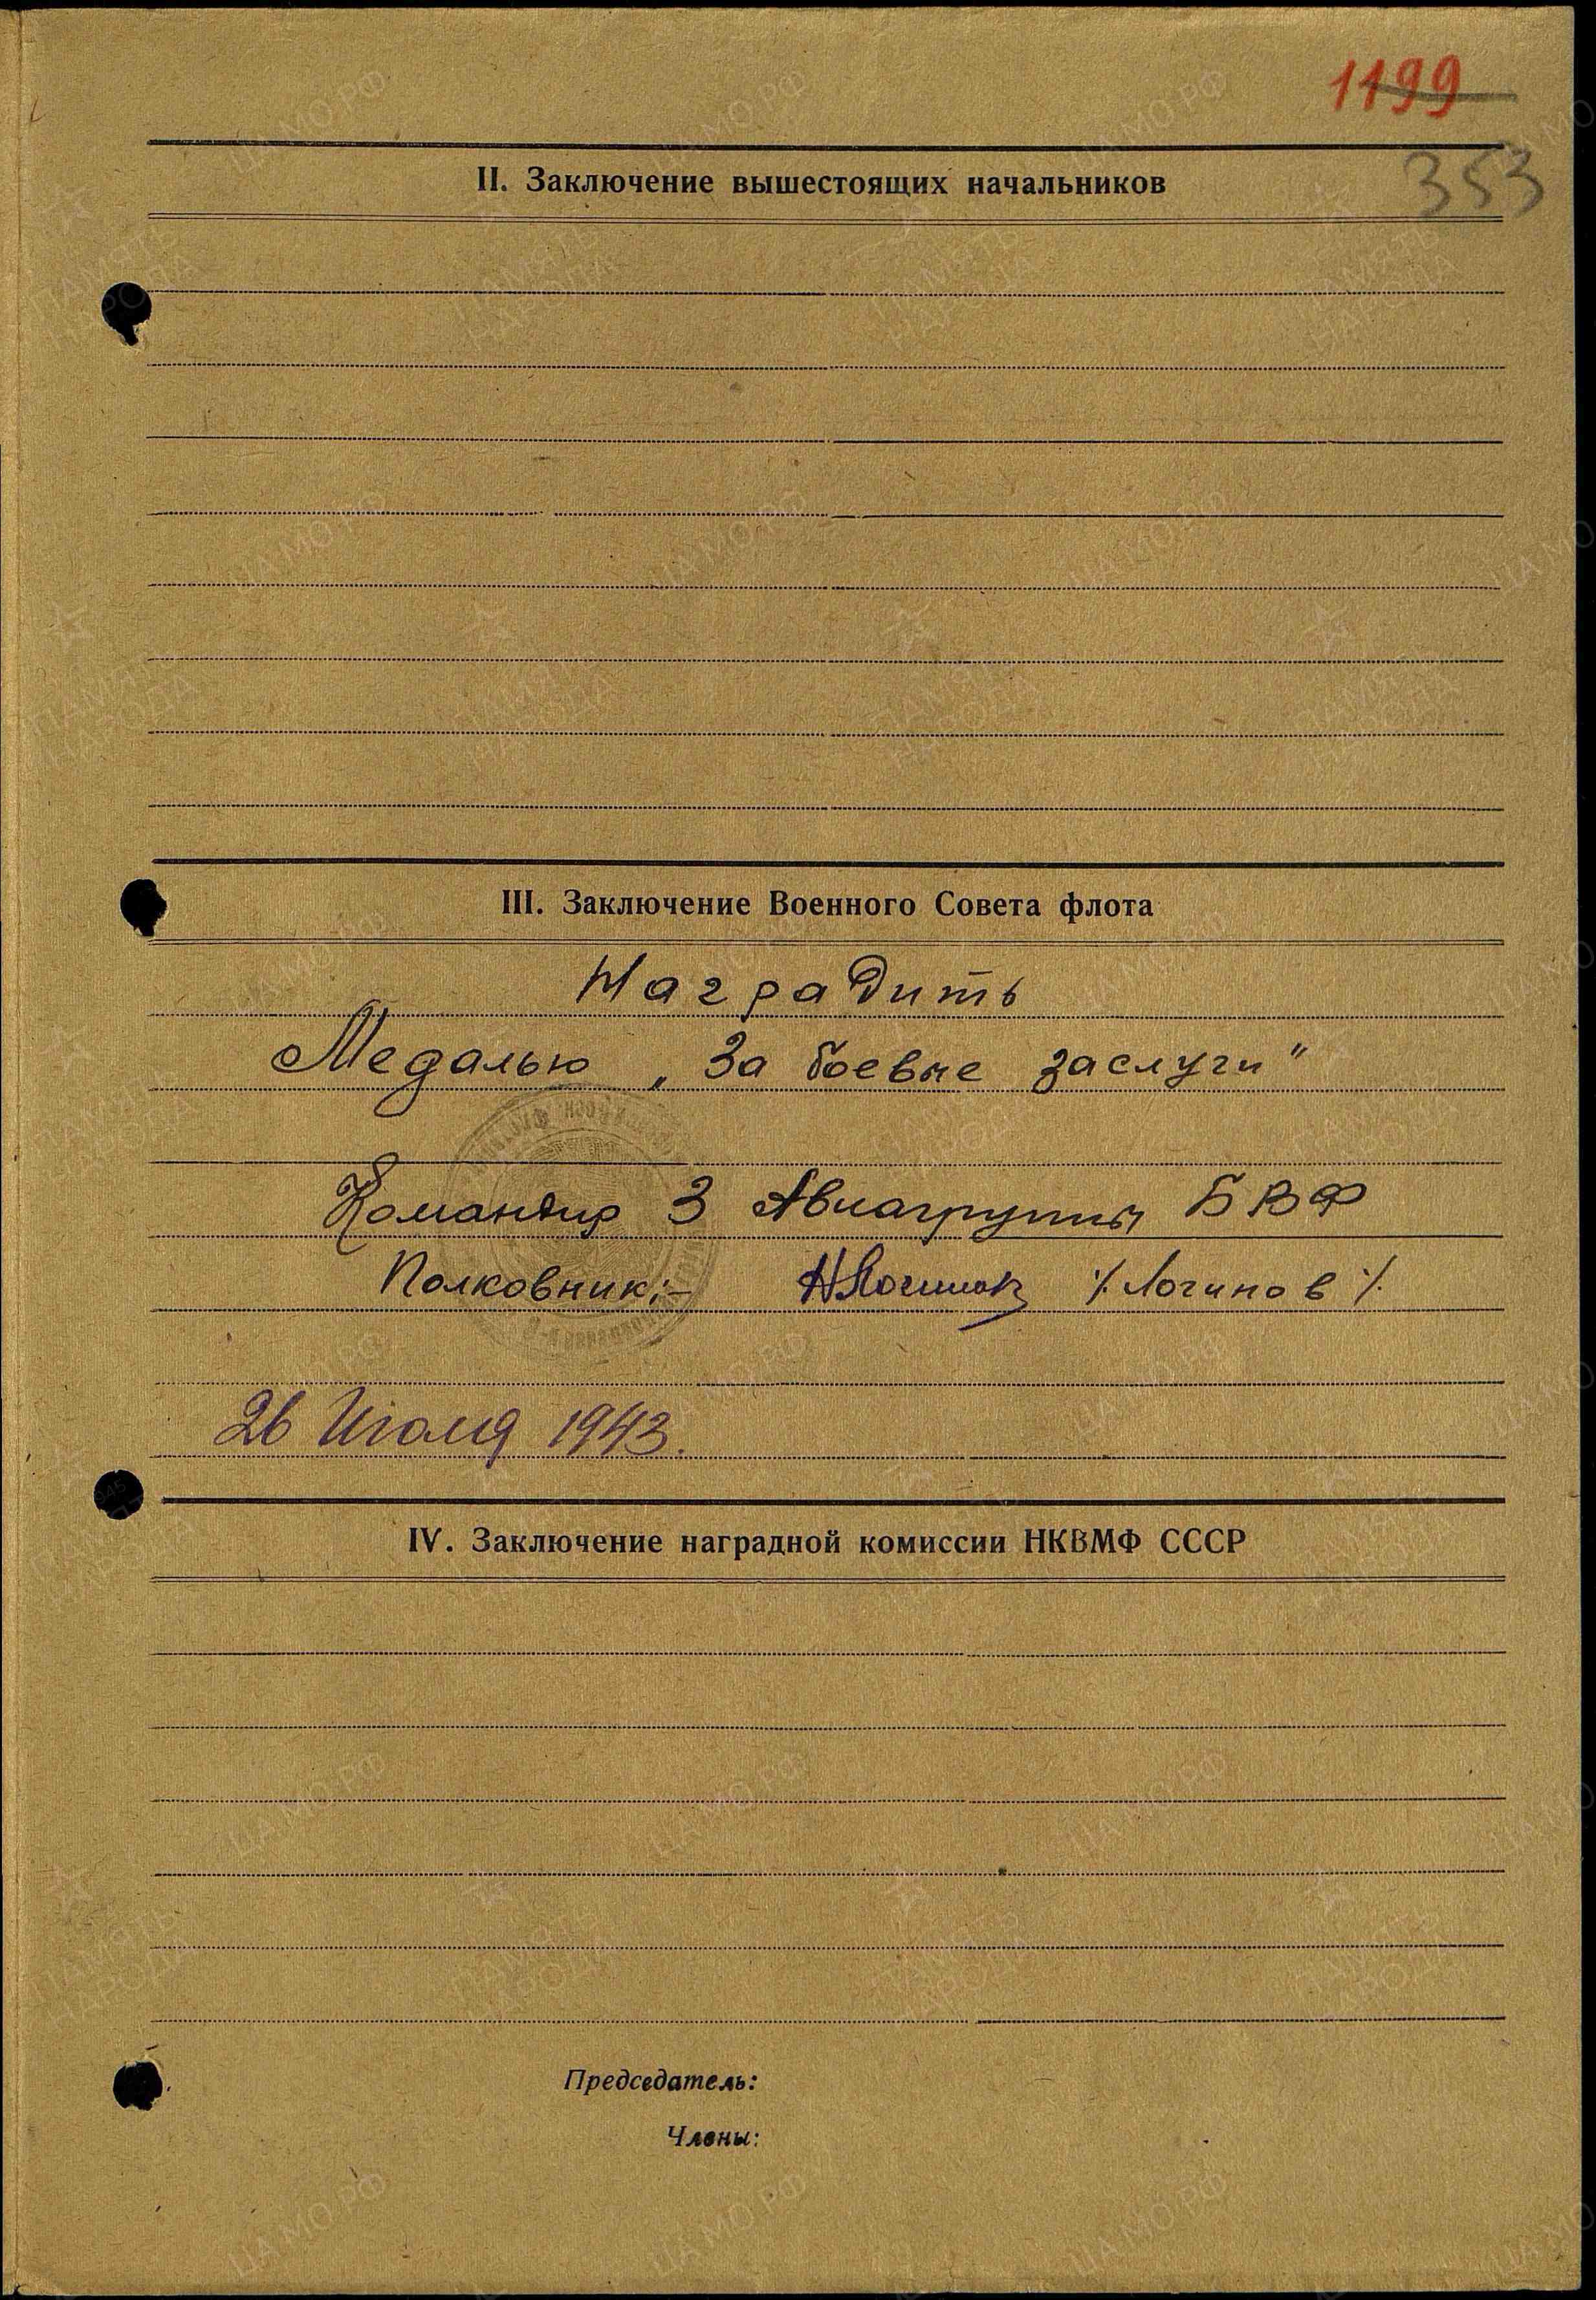 1199
353
II. Заключение вышестоящих начальников
III. Заключение Военного Совета флота
Наградить
Медалью „За боевые заслуги"
Командир 3 Авиагруппы БВФ
Полковник:- НЛогинов /Логинов/.
26 Июля 1943.
IV. Заключение наградной комиссии НКВМФ СССР
Председатель:
Члены:
ЦА МО РФ
ПАМЯТЬ
НАРОДА